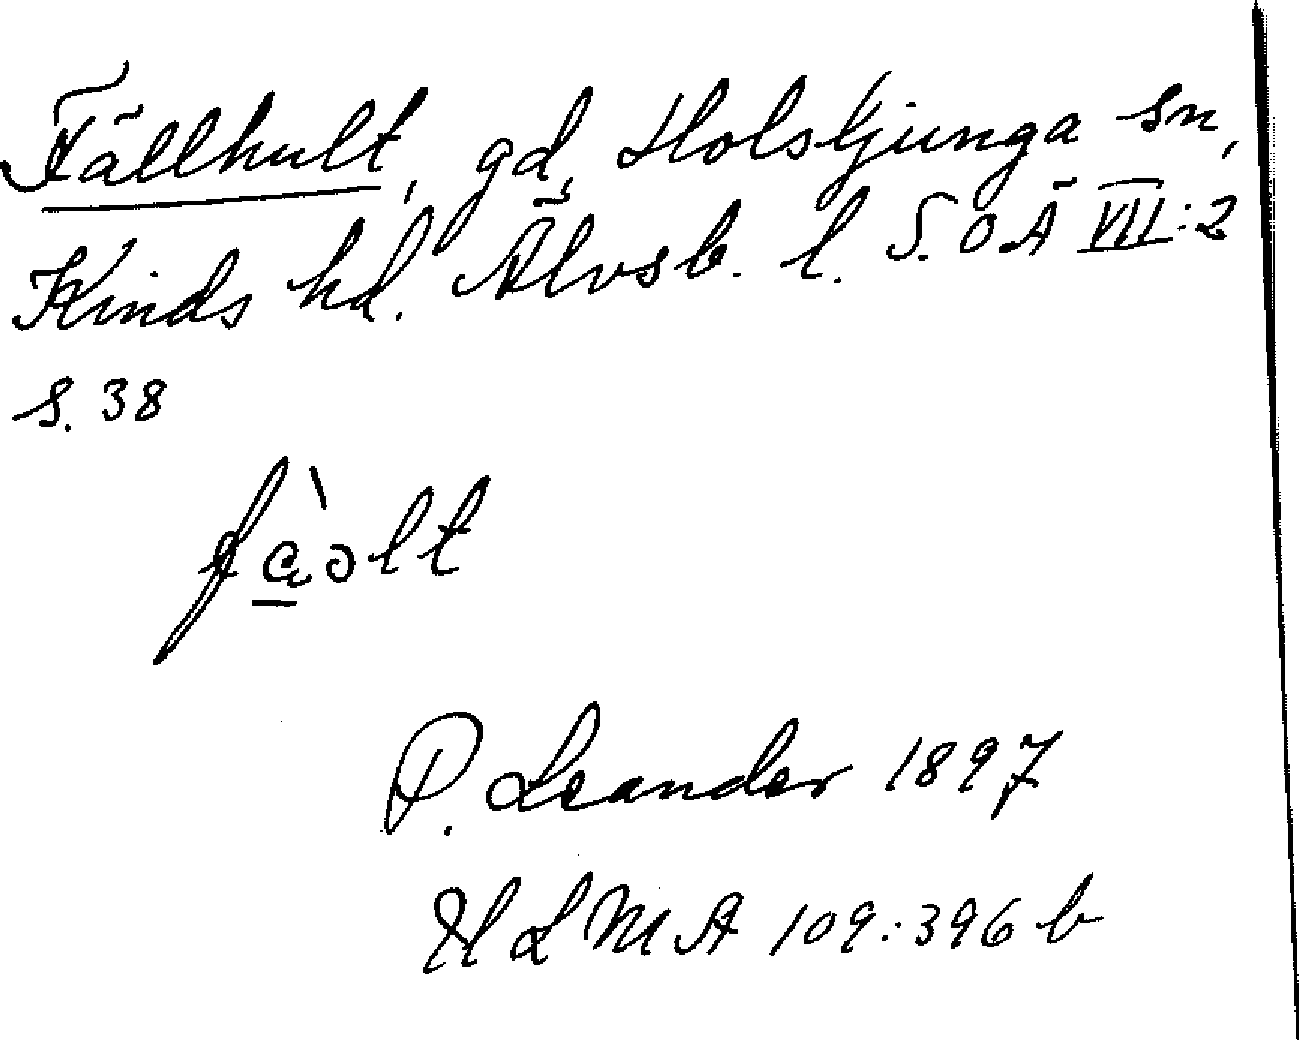 Fällhult, gd, Holsljunga sn,
Kinds hd. Älvsb. l. S.O.Ä VII:2
s. 38
fà̱ɔlt
P. Leander 1897
HLMA 109:396 b